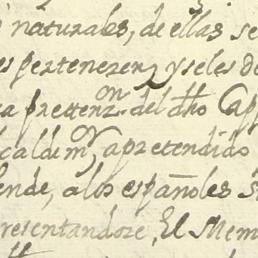 naturales, de ellas se
pertenezen, y seles de
prettenz.on del dho Cap
caldem.or, apretendido
ende, alos españoles s
resentandoze, El Mem